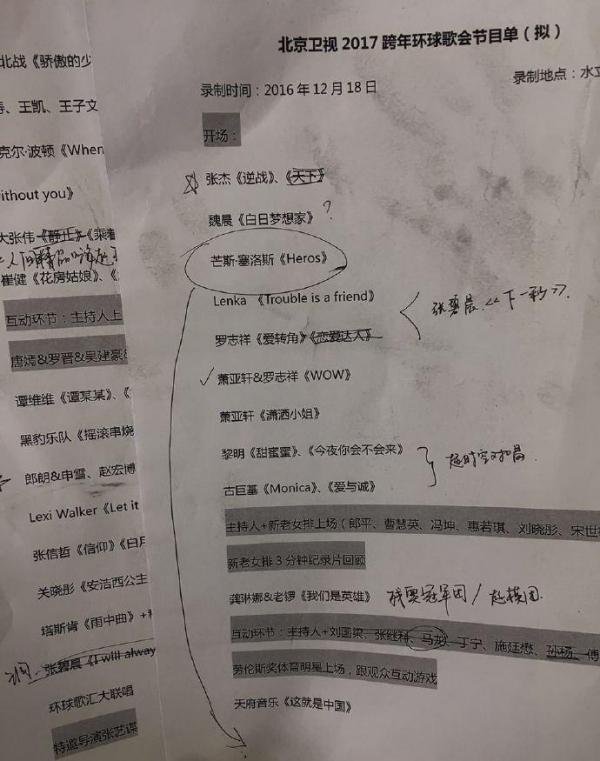 北京卫视 2017 跨年环球歌会节目单（拟）
录制时间：2016 年 12 月 18 日
录制地点：水立
开场：
张杰《逆战》、《天下》
魏晨《白日梦想家》?
芒斯·塞洛斯《Heros》
Lenka 《Trouble is a friend》
张碧晨《下一秒》.
罗志祥《爱转角》《恋爱达人》
萧亚轩&罗志祥《WOW》
萧亚轩《潇洒小姐》
黎明《甜蜜蜜》、《今夜你会不会来》
超时空对唱
古巨基《Monica》、《爱与诚》
主持人+新老女排上场（郎平、曹慧英、冯坤、惠若琪、刘晓彤、宋世
新老女排 3 分钟纪录片回顾
龚琳娜&老锣《我们是英雄》 找奥冠军团/超模团.
互动环节：主持人+刘国梁、张继科、马龙、丁宁、施廷懋、孙杨、傅
劳伦斯奖体育明星上场，跟观众互动游戏
天府音乐《这就是中国》
北战《骄傲的少
、王凯、王子文
克尔·波顿《When
ithout you》
大张伟《静止》《乘着
崔健《花房姑娘》、《
互动环节：主持人上
唐嫣&罗晋&吴建豪
谭维维《谭某某》、《
黑豹乐队《摇滚串烧
郎朗&申雪、赵宏博
Lexi Walker《Let it
张信哲《信仰》《白月
关晓彤《安洁西公主
塔斯肯《雨中曲》+
张碧晨《I will alway
环球歌汇大联唱
特邀导演张艺谋